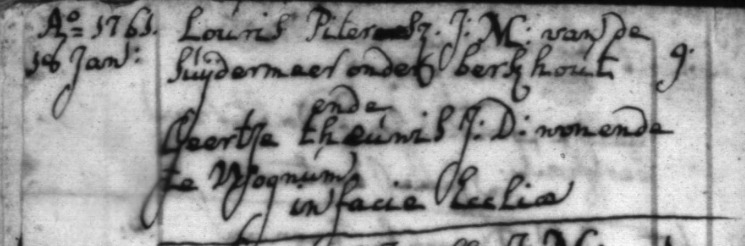 Aº= 1761. Louris Pitersz. J: M: van de
18 Jan: Suijdermeer onder berkhout 9.
ende
Geertje theunis J: D: wonende
te Wognum
in facie Eccliæ